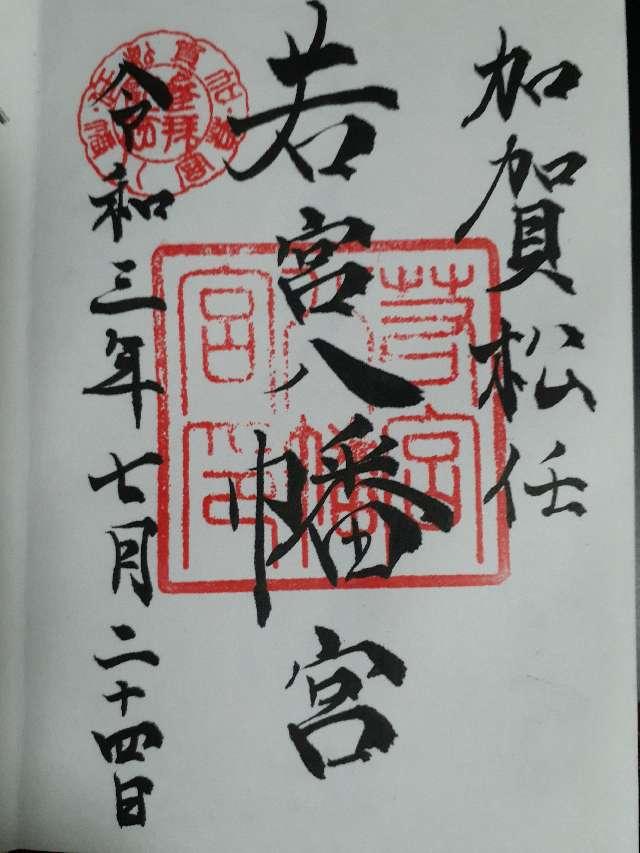 加賀松任
若宮八幡宮
令和三年七月二十四日
若宮八幡宮印